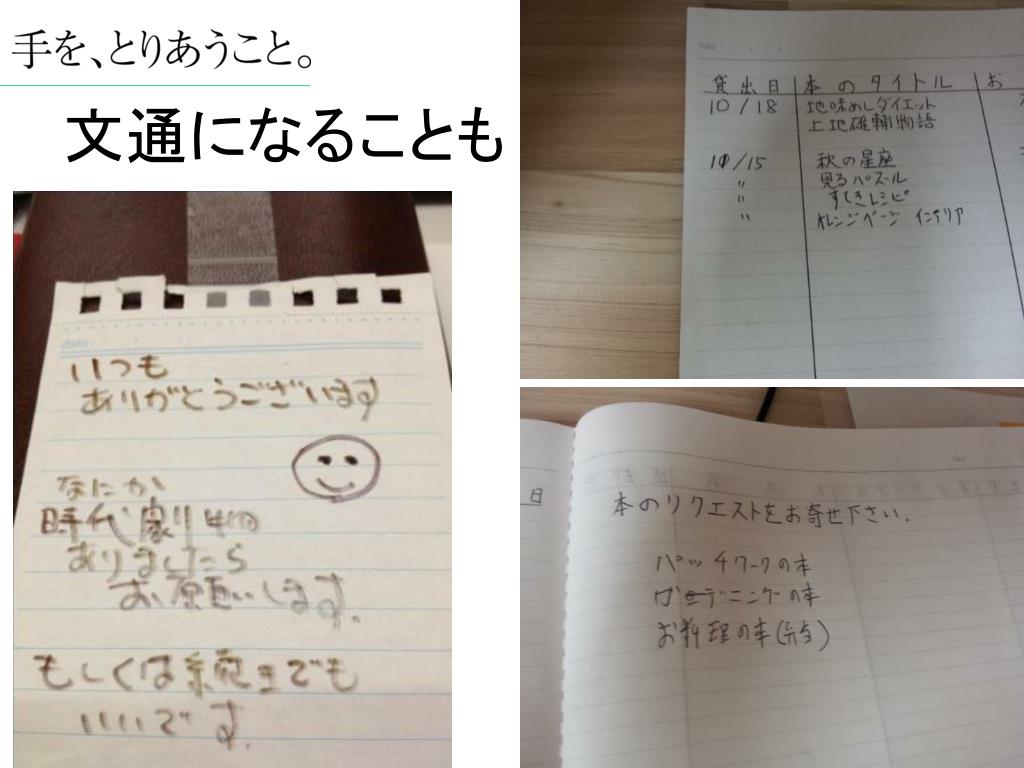 手を、とりあうこと。
文通になることも
date:
いつも
ありがとうございます
なにか
時代劇物
ありましたら
お願いします.
もしくは続きでも
いいです.
Date
貸出日 本のタイトル お
10/18 地味めしダイエット
上地雄輔物語
10/15 秋の星座
〃 見るパズル
〃 すてきレシピ
〃 オレンジページ インテリア
日
本のリクエストをお寄せ下さい.
パッチワークの本
ガーデニングの本
お料理の本